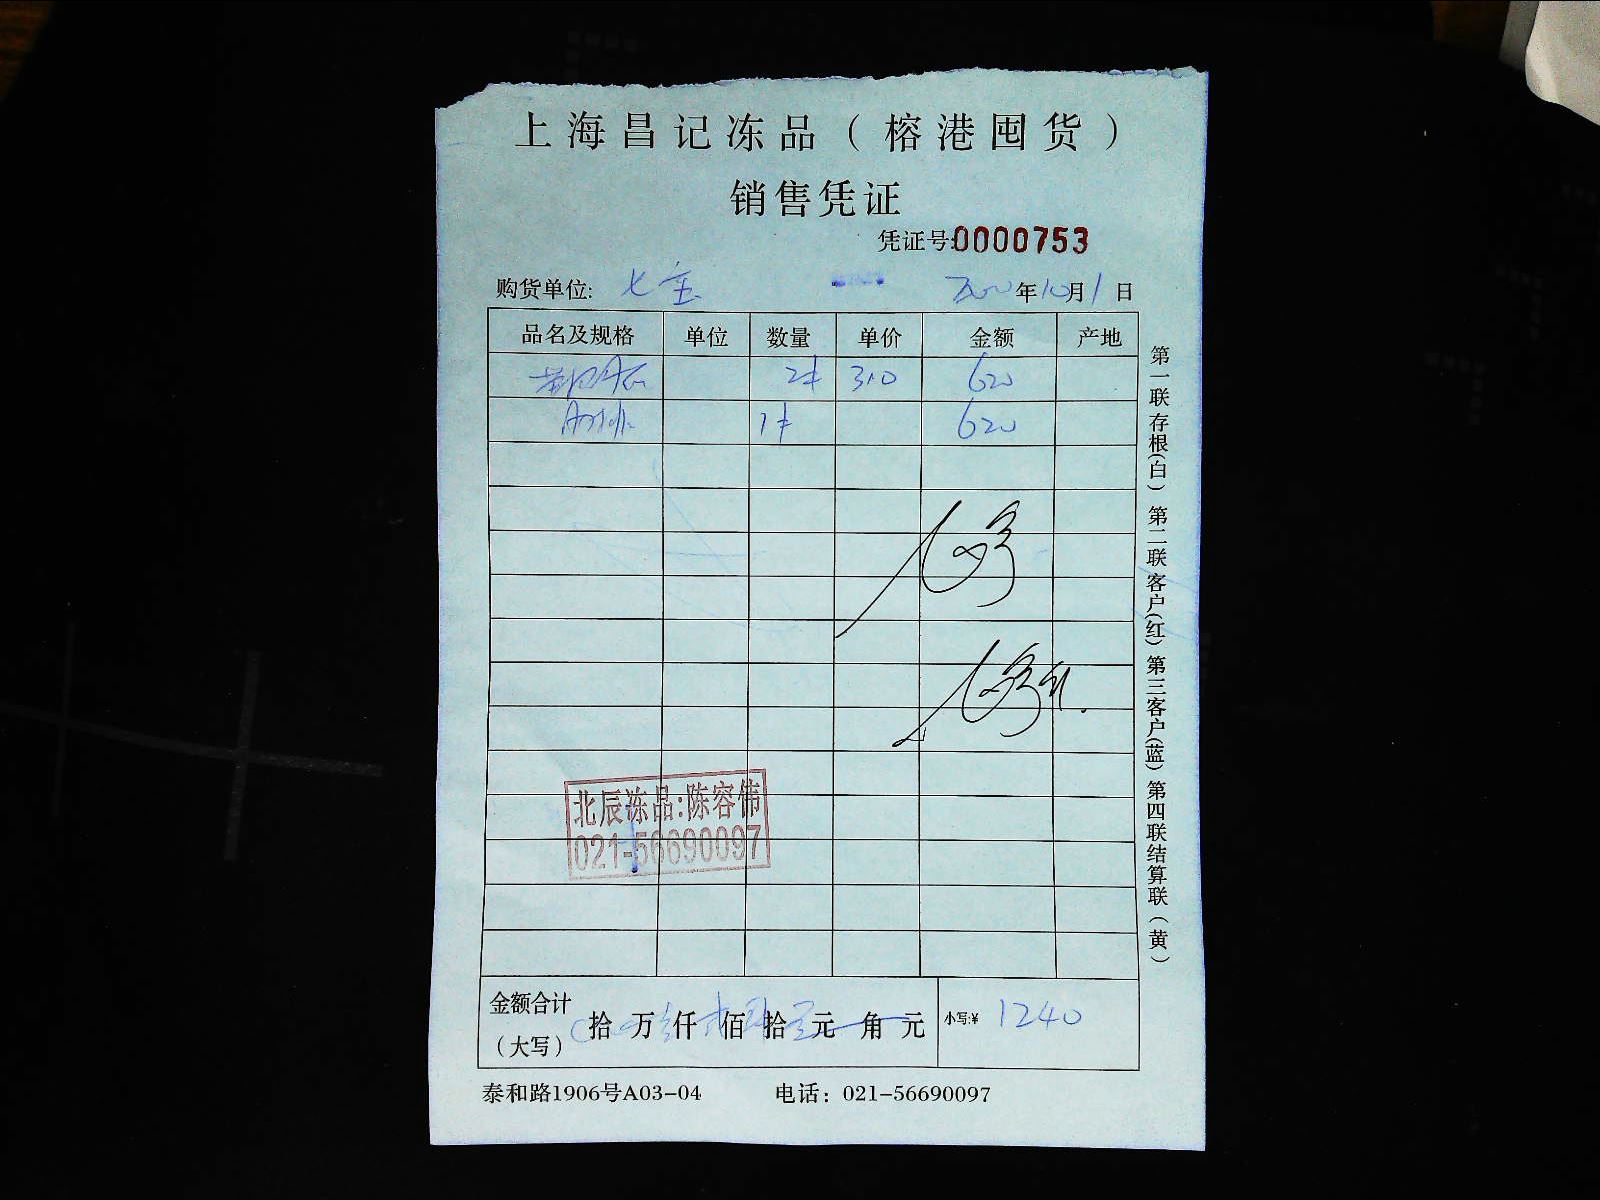 上海昌记冻品（榕港囤货）
销售凭证
凭证号:0000753
购货单位: 七宝 年10月1日
品名及规格 单位 数量 单价 金额 产地
2件 310 620
1件 620
北辰冻品:陈容伟
021-56690097
金额合计（大写） 拾 万 仟 佰 拾 元 角 元 小写:¥ 1240
泰和路1906号A03-04 电话：021-56690097
第一联存根(白) 第二联客户(红) 第三客户(蓝) 第四联结算联（黄）